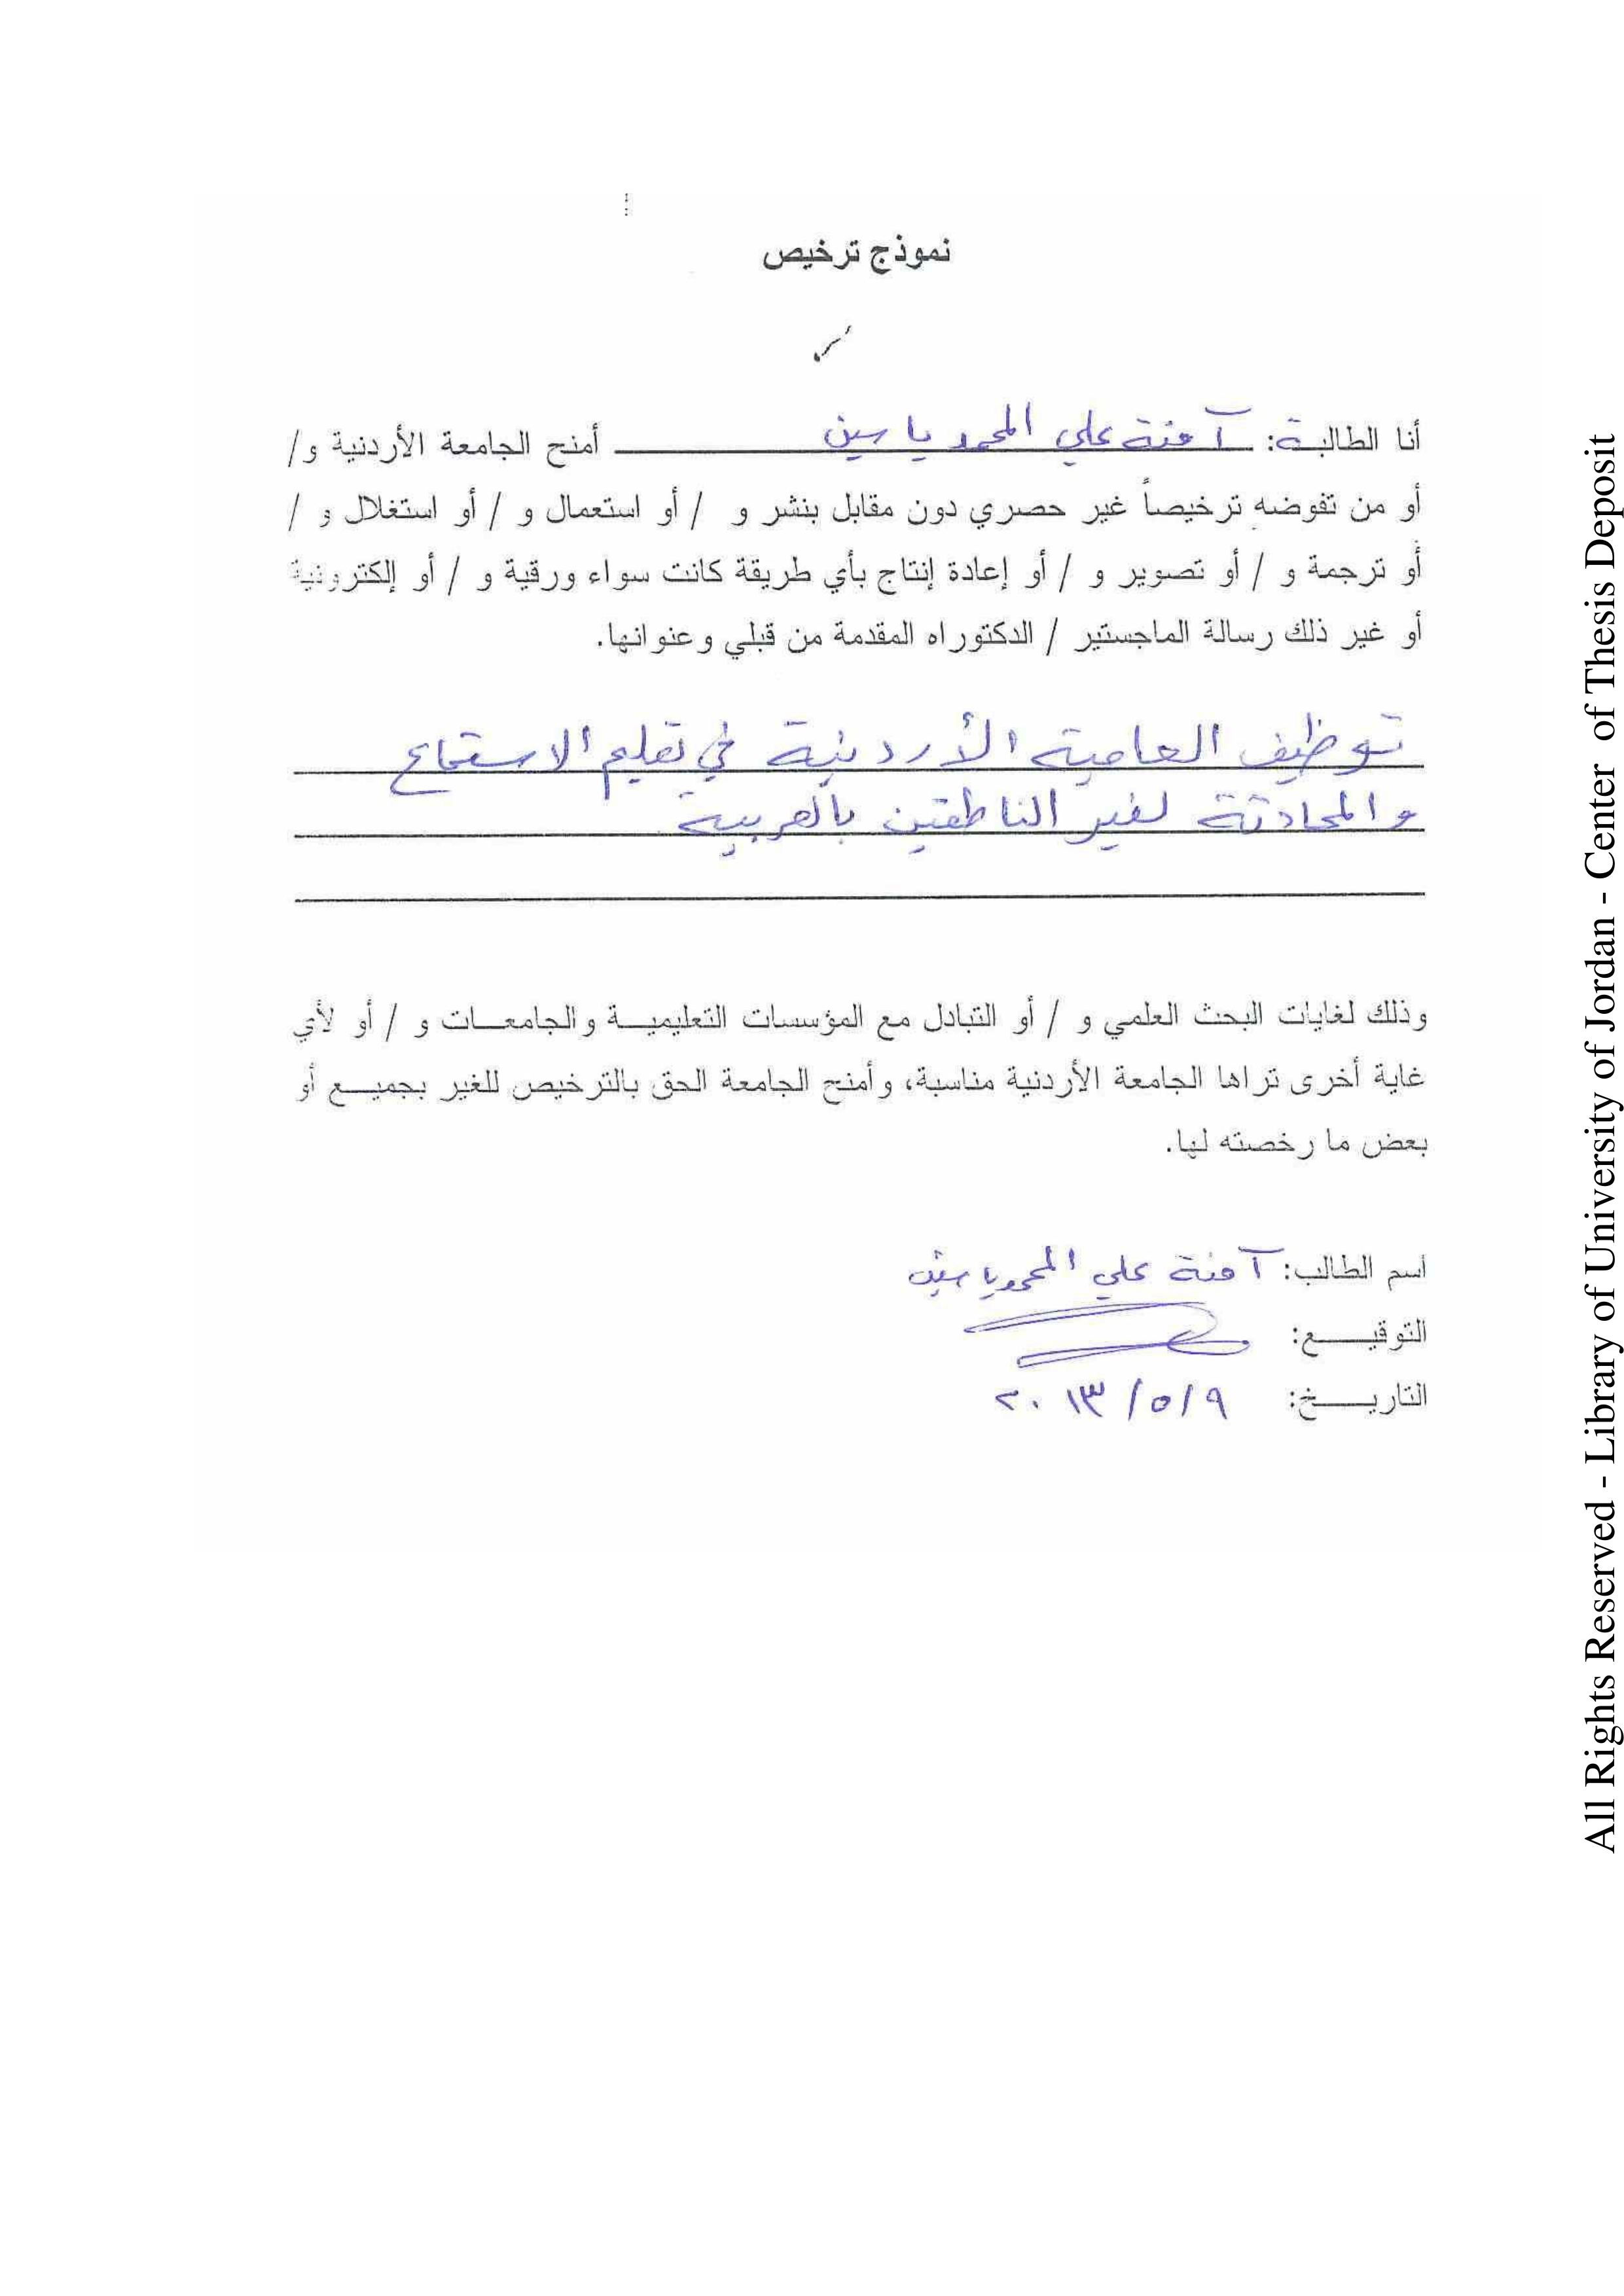 نموذج ترخيص
أنا الطالبة: آمنة علي المحمد ياسين أمنح الجامعة الأردنية و/
أو من تفوضه ترخيصاً غير حصري دون مقابل بنشر و / أو استعمال و / أو استغلال و /
أو ترجمة و / أو تصوير و / أو إعادة إنتاج بأي طريقة كانت سواء ورقية و / أو إلكترونية
أو غير ذلك رسالة الماجستير / الدكتوراه المقدمة من قبلي وعنوانها.
توظيف العامية الأردنية في تعليم الاستماع
والمحادثة لغير الناطقين بالعربية
وذلك لغايات البحث العلمي و / أو التبادل مع المؤسسات التعليمية والجامعات و / أو لأي
غاية أخرى تراها الجامعة الأردنية مناسبة، وأمنح الجامعة الحق بالترخيص للغير بجميع أو
بعض ما رخصته لها.
اسم الطالب: آمنة علي المحمد ياسين
التوقيع:
التاريخ: ٩/٥/٢٠١٣
All Rights Reserved - Library of University of Jordan - Center of Thesis Deposit